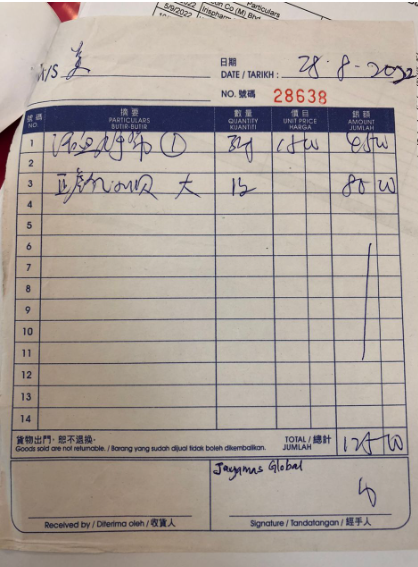 5/9/2022
Particulars
M/S 美
日期
DATE / TARIKH : 28-8-2022
NO. 號碼 28638
號碼 NO. 摘要 PARTICULARS BUTIR-BUTIR 數量 QUANTITY KUANTITI 價目 UNIT PRICE HARGA 銀額 AMOUNT JUMLAH
1 ① 3 15 00 45 00
2
3 大 80 00
4
5
6
7
8
9
10
11
12
13
14
貨物出門·恕不退換· TOTAL / 總計 125 00
Goods sold are not returnable. / Barang yang sudah dijual tidak boleh dikembalikan. JUMLAH
Jayamas Global
Received by / Diterima oleh / 收貨人 Signature / Tandatangan / 經手人